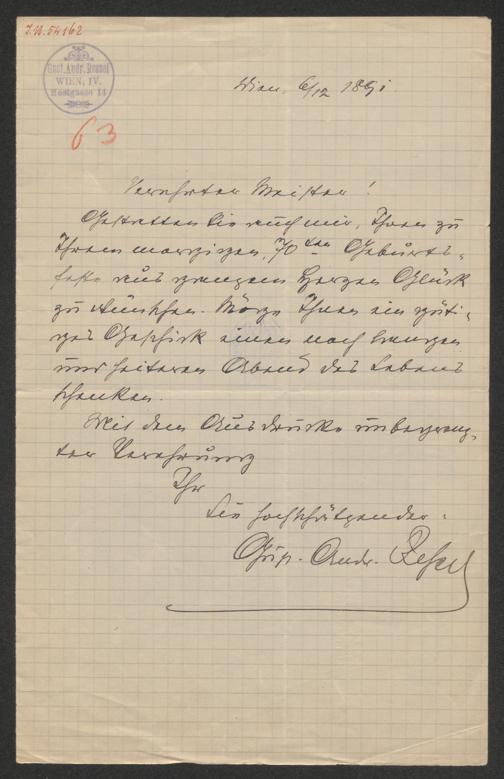 J.N. 54162
Gust. Andr. Ressel
WIEN, IV.
Heugasse 14
63
Wien, 6/12 1891.
Verehrter Meister!
Gestatten Sie auch mir, Ihnen zu
Ihrem morgigen, 70ten Geburts-
feste aus ganzem Herzen Glück
zu wünschen. Möge Ihnen ein güti-
ges Geschick einen noch langen
und heiteren Abend des Lebens
schenken.
Mit dem Ausdrucke unbegrenz-
ter Verehrung
Ihr
Sie hochschätzender
Gust. Andr. Ressel